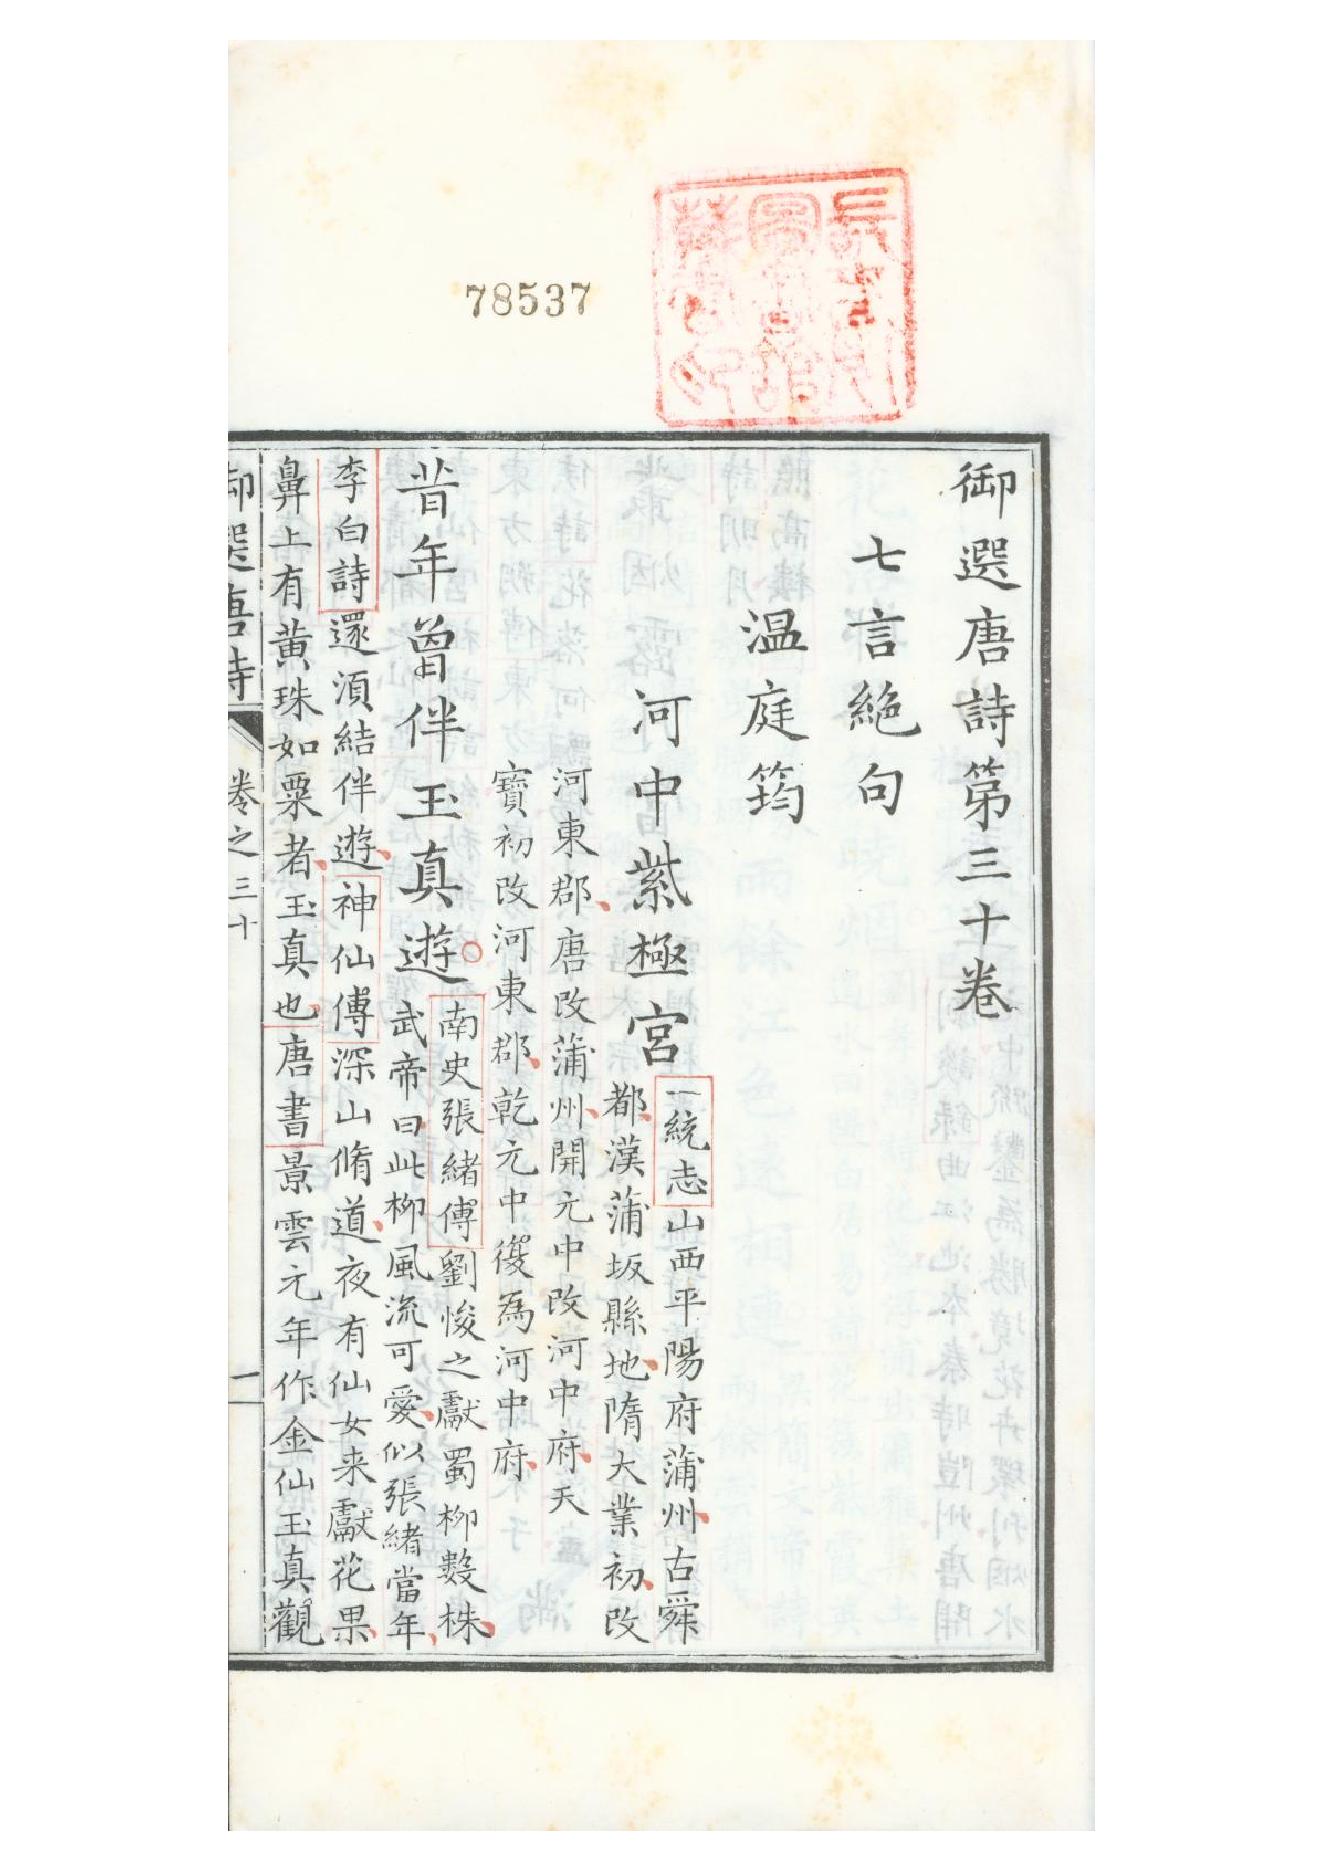 78537
御選唐詩第三十卷
七言絶句
温庭筠
河中紫極宮
一統志山西平陽府蒲州古舜
都漢蒲坂縣地隋大業初改
河東郡唐改蒲州開元中改河中府天
寶初改河東郡乾元中復為河中府
昔年曾伴玉真遊
南史張緒傳劉悛之獻蜀柳數株
武帝曰此柳風流可愛似張緒當年
李白詩還須結伴遊神仙傳深山脩道夜有仙女来獻花果
鼻上有黄珠如粟者玉真也唐書景雲元年作金仙玉真觀
御選唐詩
卷之三十
一